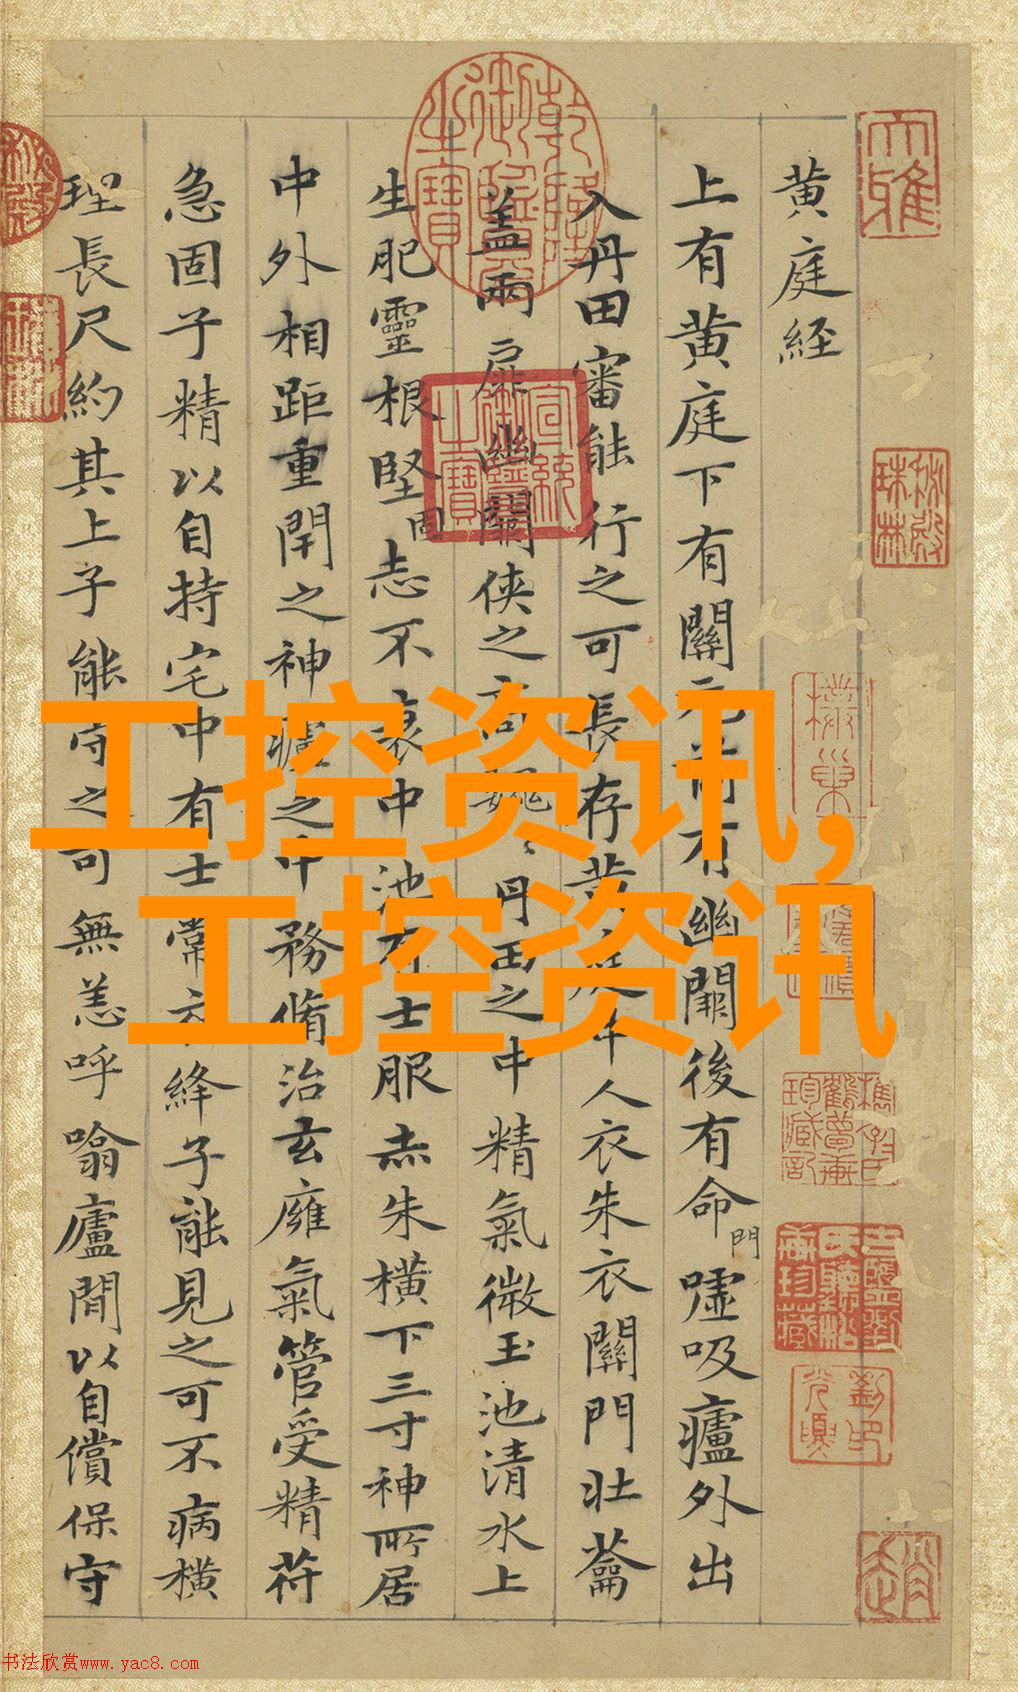 黄庭経
上有黄庭下有關元前有幽闕後有命門噓吸廬外出
入丹田審能行之可長存黄庭中人衣朱衣關門壯籥
盖兩扉幽關俠之高巍〻丹田之中精氣微玉池清水上
生肥靈根堅固志不衰中池有士服赤朱横下三寸神所居
中外相距重閇之神廬之中務脩治玄廱氣管受精苻
急固子精以自持宅中有士常衣絳子能見之可不病横
理長尺約其上子能守之可無恙呼噏廬閒以自償保守
工控资讯,
工控资讯
书法欣赏www.yac8.com